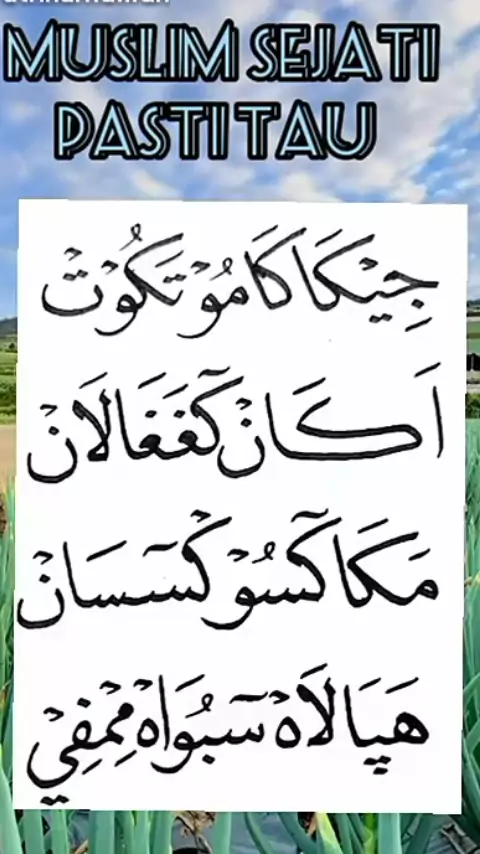 MUSLIM SEJATI
PASTI TAU
جِيْكَا كَامُوْ تَكُوْتْ
اَكَانْ كٓغَغَالَانْ
مَكَا كٓسُوْكْسٓسَانْ
هَپَالَاهْ سٓبُوَاهْ مِمْفِيْ